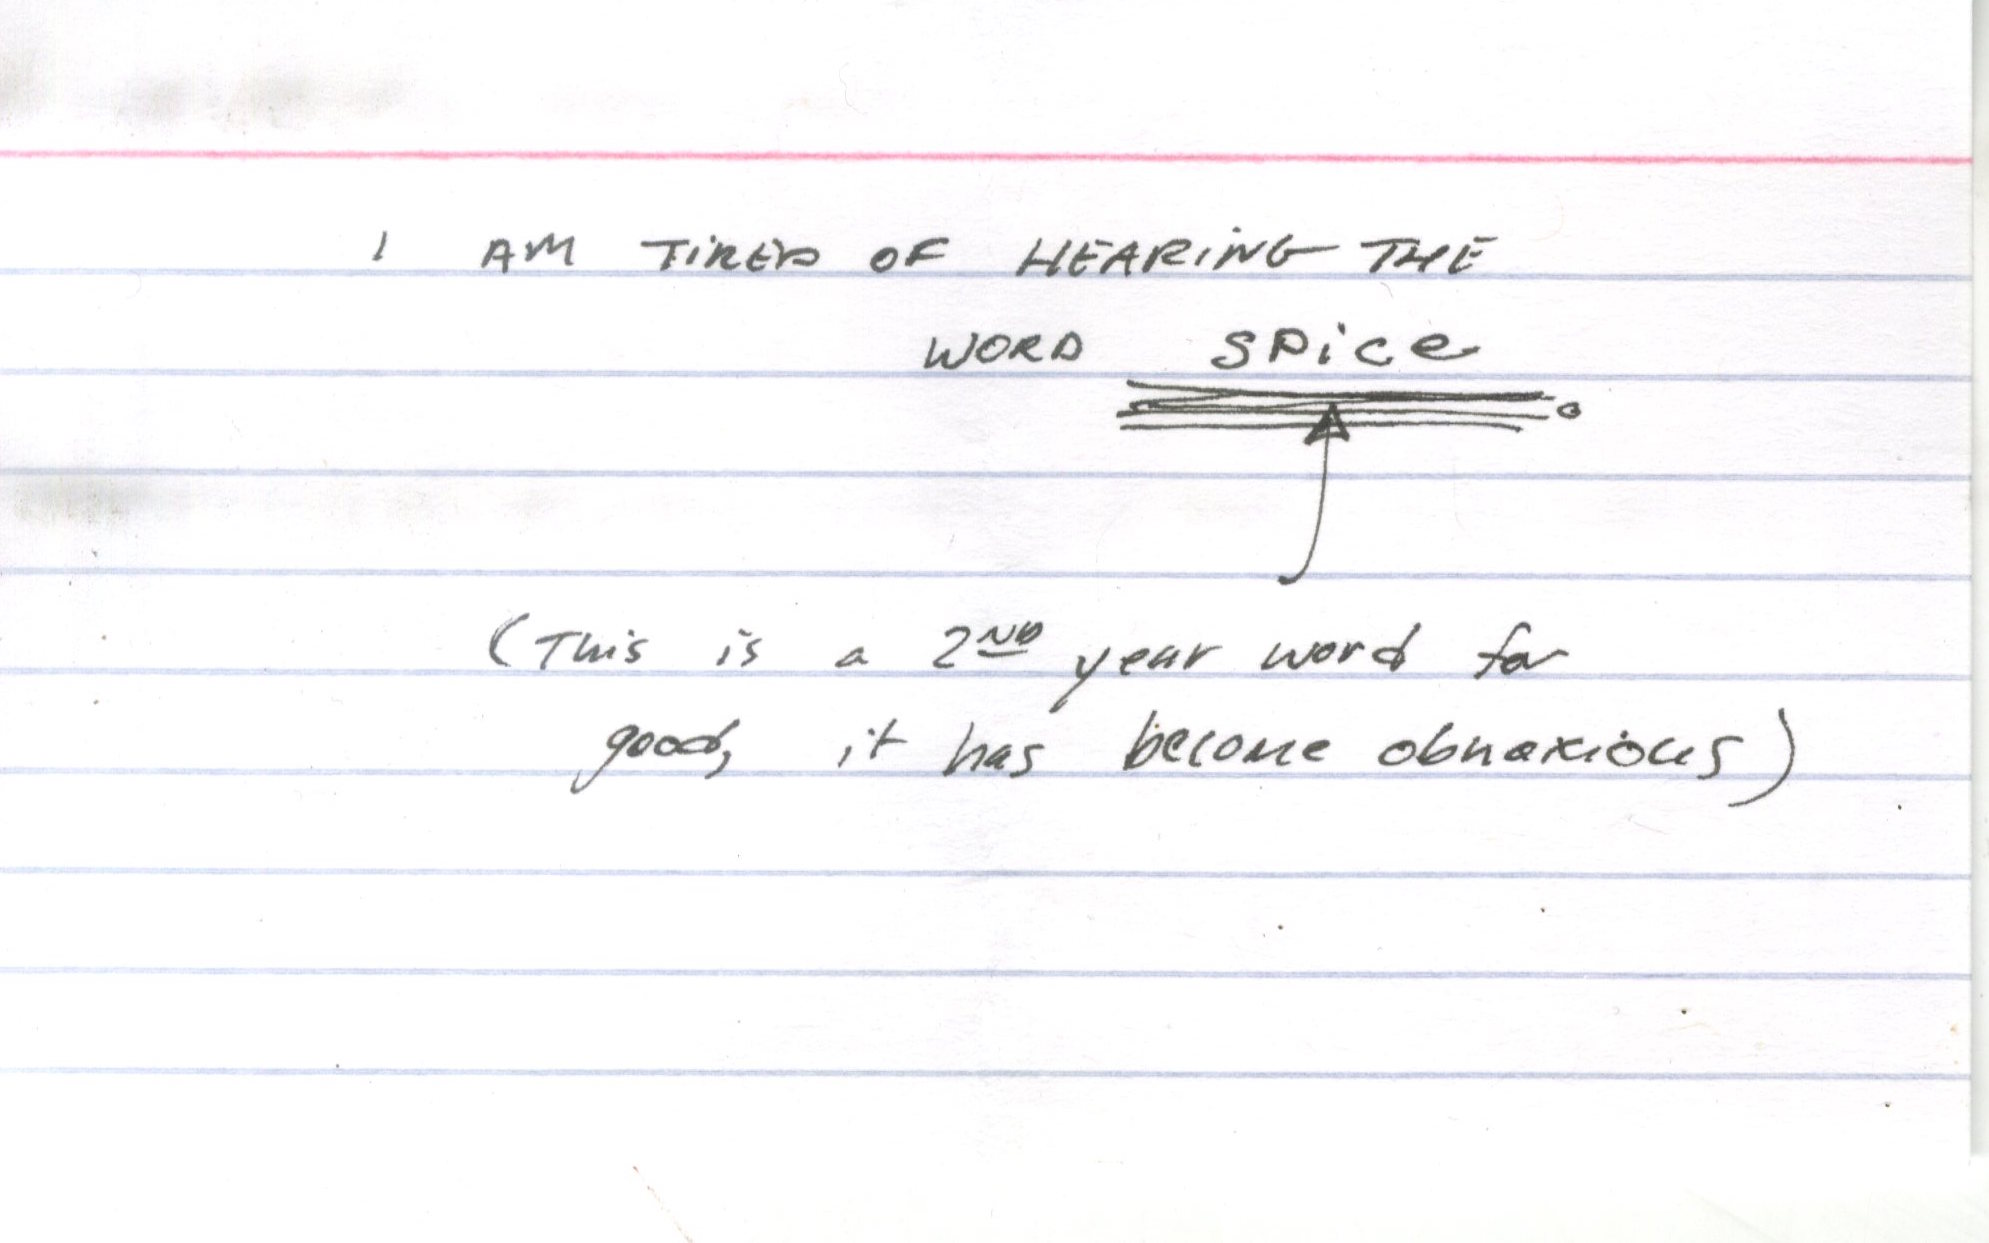 I AM TIRED OF HEARING THE
WORD SPice.
(This is a 2ND year word for
good, it has become obnoxious)